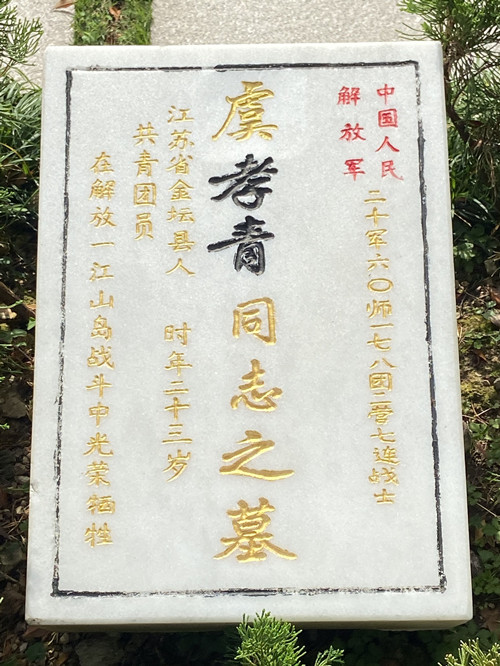 中国人民
解放军
二十军六〇师一七八团二营七连战士
虞孝青同志之墓
江苏省金坛县人 时年二十三岁
共青团员
在解放一江山岛战斗中光荣牺牲